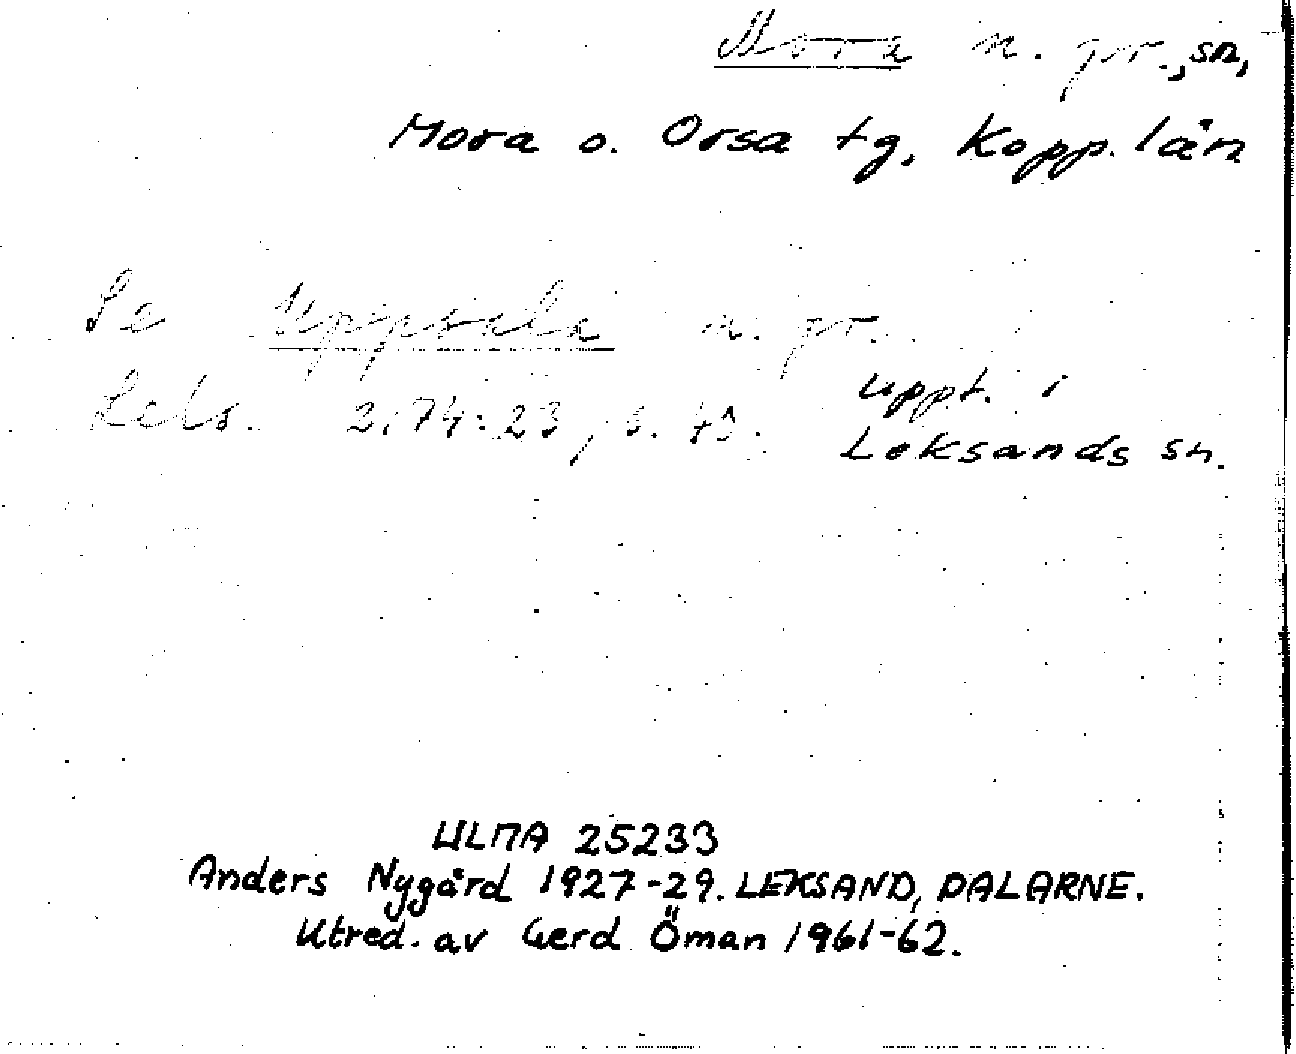 Mora n. gr., sn,
Mora o. Orsa tg, Kopp. län
Se Uppsala n. gr.
Leks. 2:74:23, s. 43. uppt. i
Leksands sn.
ULMA 25233
Anders Nygård 1927-29. LEKSAND, DALARNE.
Utred. av Gerd Öman 1961-62.